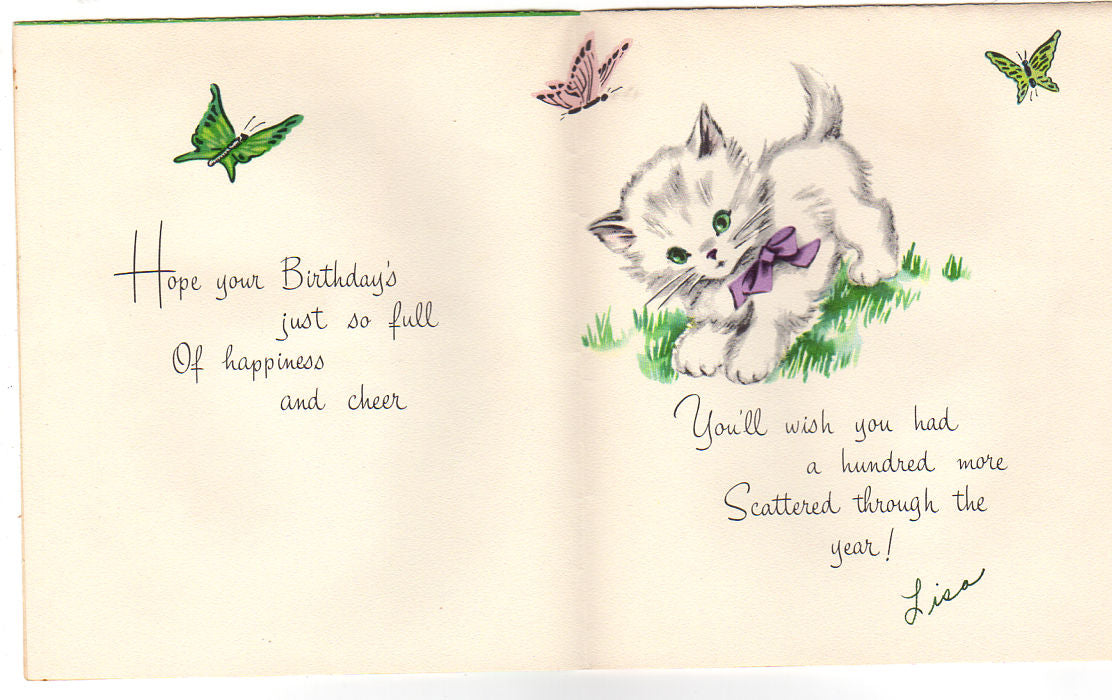 Hope your Birthday's
just so full
Of happiness
and cheer
You'll wish you had
a hundred more
Scattered through the
year!
Lisa